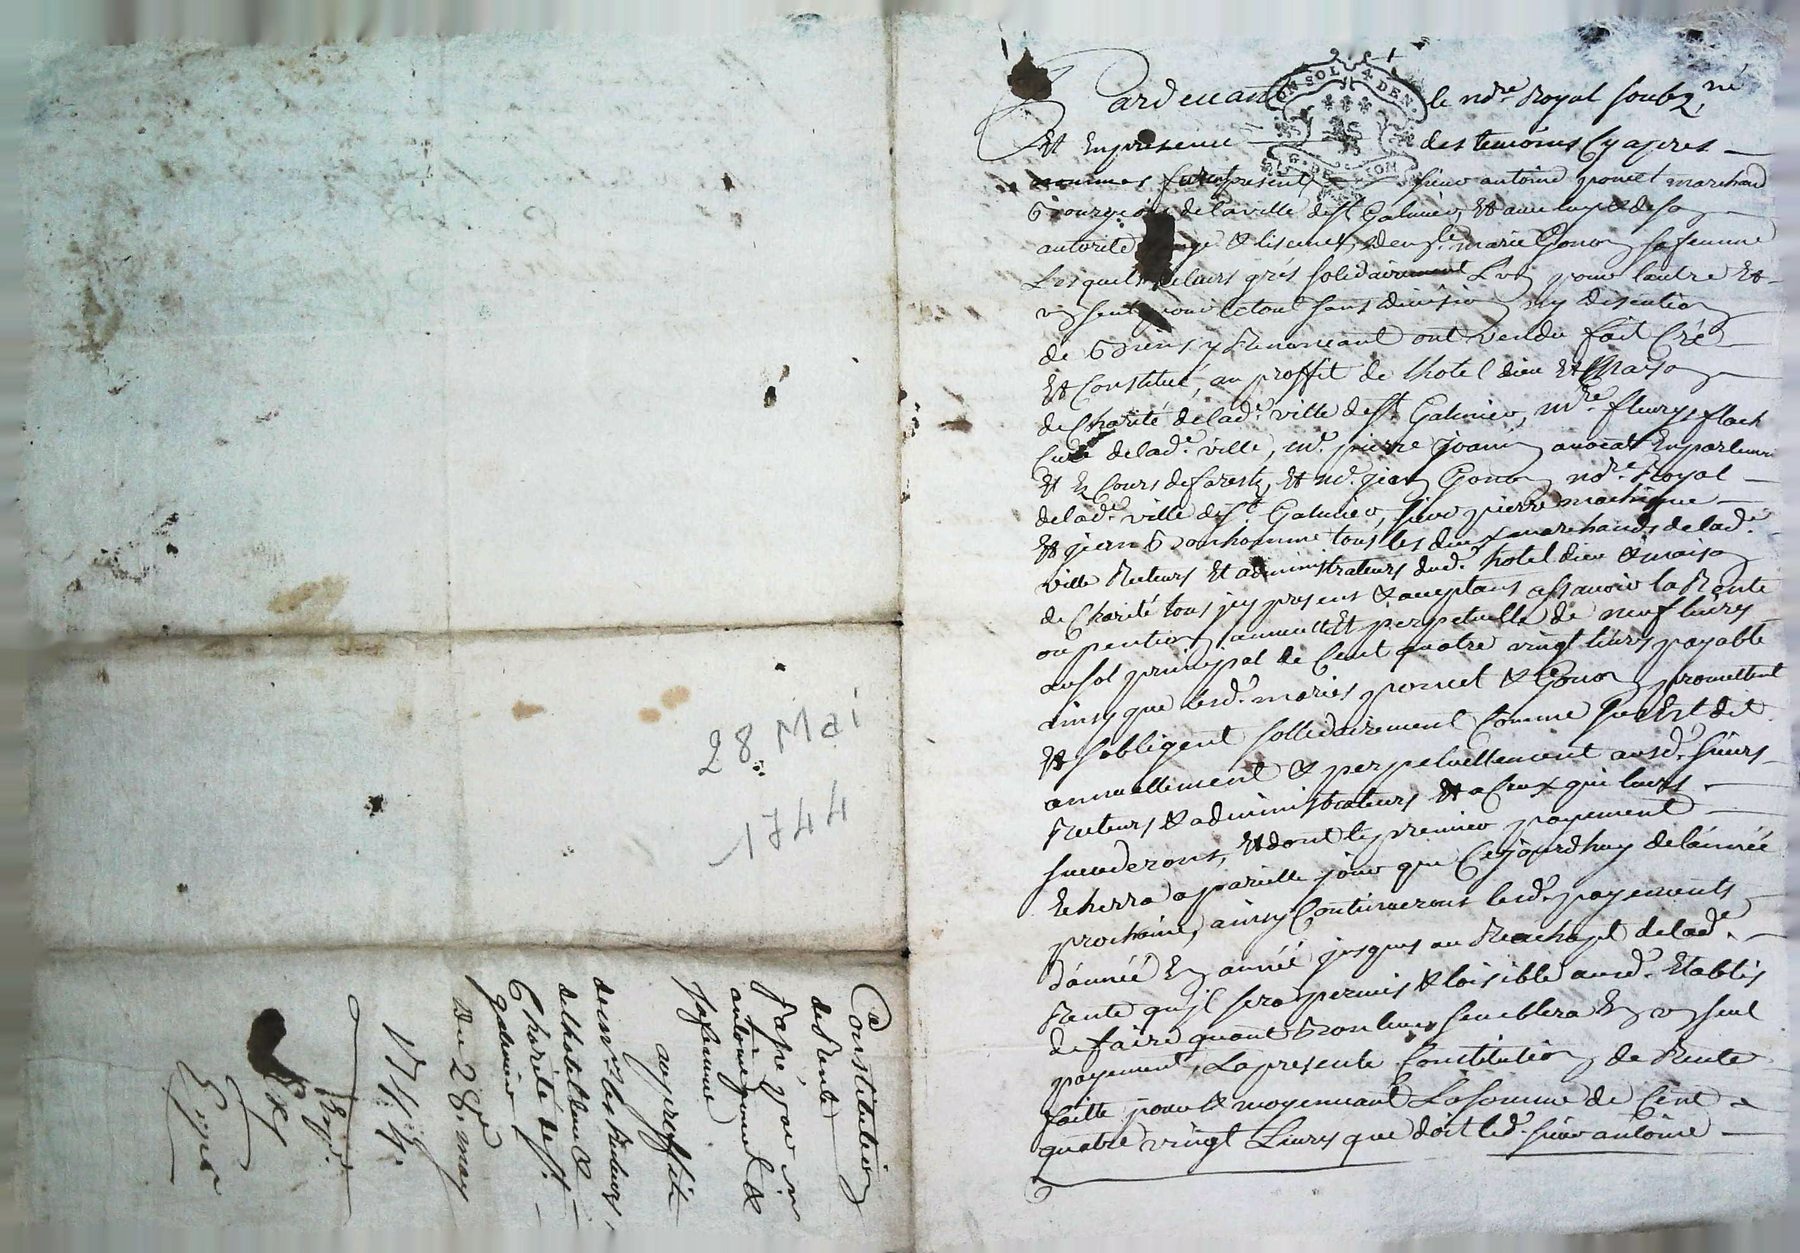 28 Mai
1744
Constitution
de Rente
passé par sr
antoine poncet &
sa femme
au proffit
de mrs les Recteurs
de lhotel dieu &
Charité de st
galmier
Du 28e may
1744.
Expé
ON SOL 4 DEN.
G. DE LYON
Pardevant le nore Royal soubzné
Et En presence des temoins Cy apres
nommes furent present sieur antoine poncet marchand
Bourgeois de la ville de st Galmier, Et avec luy & de son
autorité & licence, demlle marie Gonon sa femme
Lesquels de leurs grés solidairement L'un pour lautre Et
un seul pour le tout sans division ny discution
de Biens y Renoncant ont vendu fait Créé
Et Constitué, au proffit de lhotel dieu Et Maison
de Charité de lade ville de st Galmier, mre fleury flach
Curé de lade ville, me pierre Joanin avocat En parlement
Et Es Cours de forestz, Et me jean Gonon nore Royal
de lade ville de st Galmier, sieur pierre
Et jean Bonhomme tous les deux marchands de lade
ville Recteurs Et administrateurs dud. hotel dieu & maison
de Charité tous jcy present & acceptans assavoir la Rente
ou pention annuelle Et perpetuelle de neuf livres
au sol principal de Cent quatre vingt livres payable
ainsy que lesd. mariés poncet & Gonon promettent
Et sobligent sollidairement Comme sus Est dit
annuellement & perpetuellement ausd. sieurs
Recteurs & administrateurs Et a Ceux qui leurs
succederont, Et dont le premier payement
Echerra a pareille jour que Cejourdhuy de lannée
prochaine, ainsy Continueront lesd. payements
dannée En année jusques au Rachapt de lade
Rente qu'jl sera permis & loisible ausd. Etablis
de faire quant Bon leur semblera En un seul
payement, La presente Constitution de Rente
faitte pour & moyennant La somme de Cent
quatre vingt Livres que doit led. sieur antoine